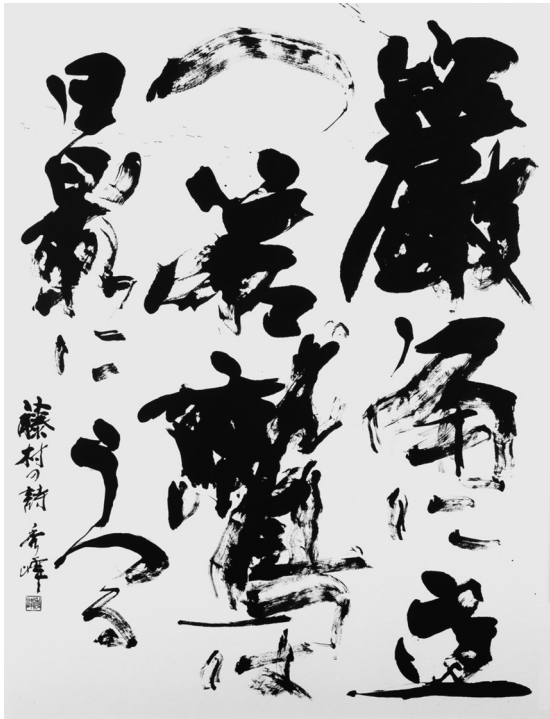 巌角に立
つ若鷹は
日影にうつる
藤村の詩 秀峰